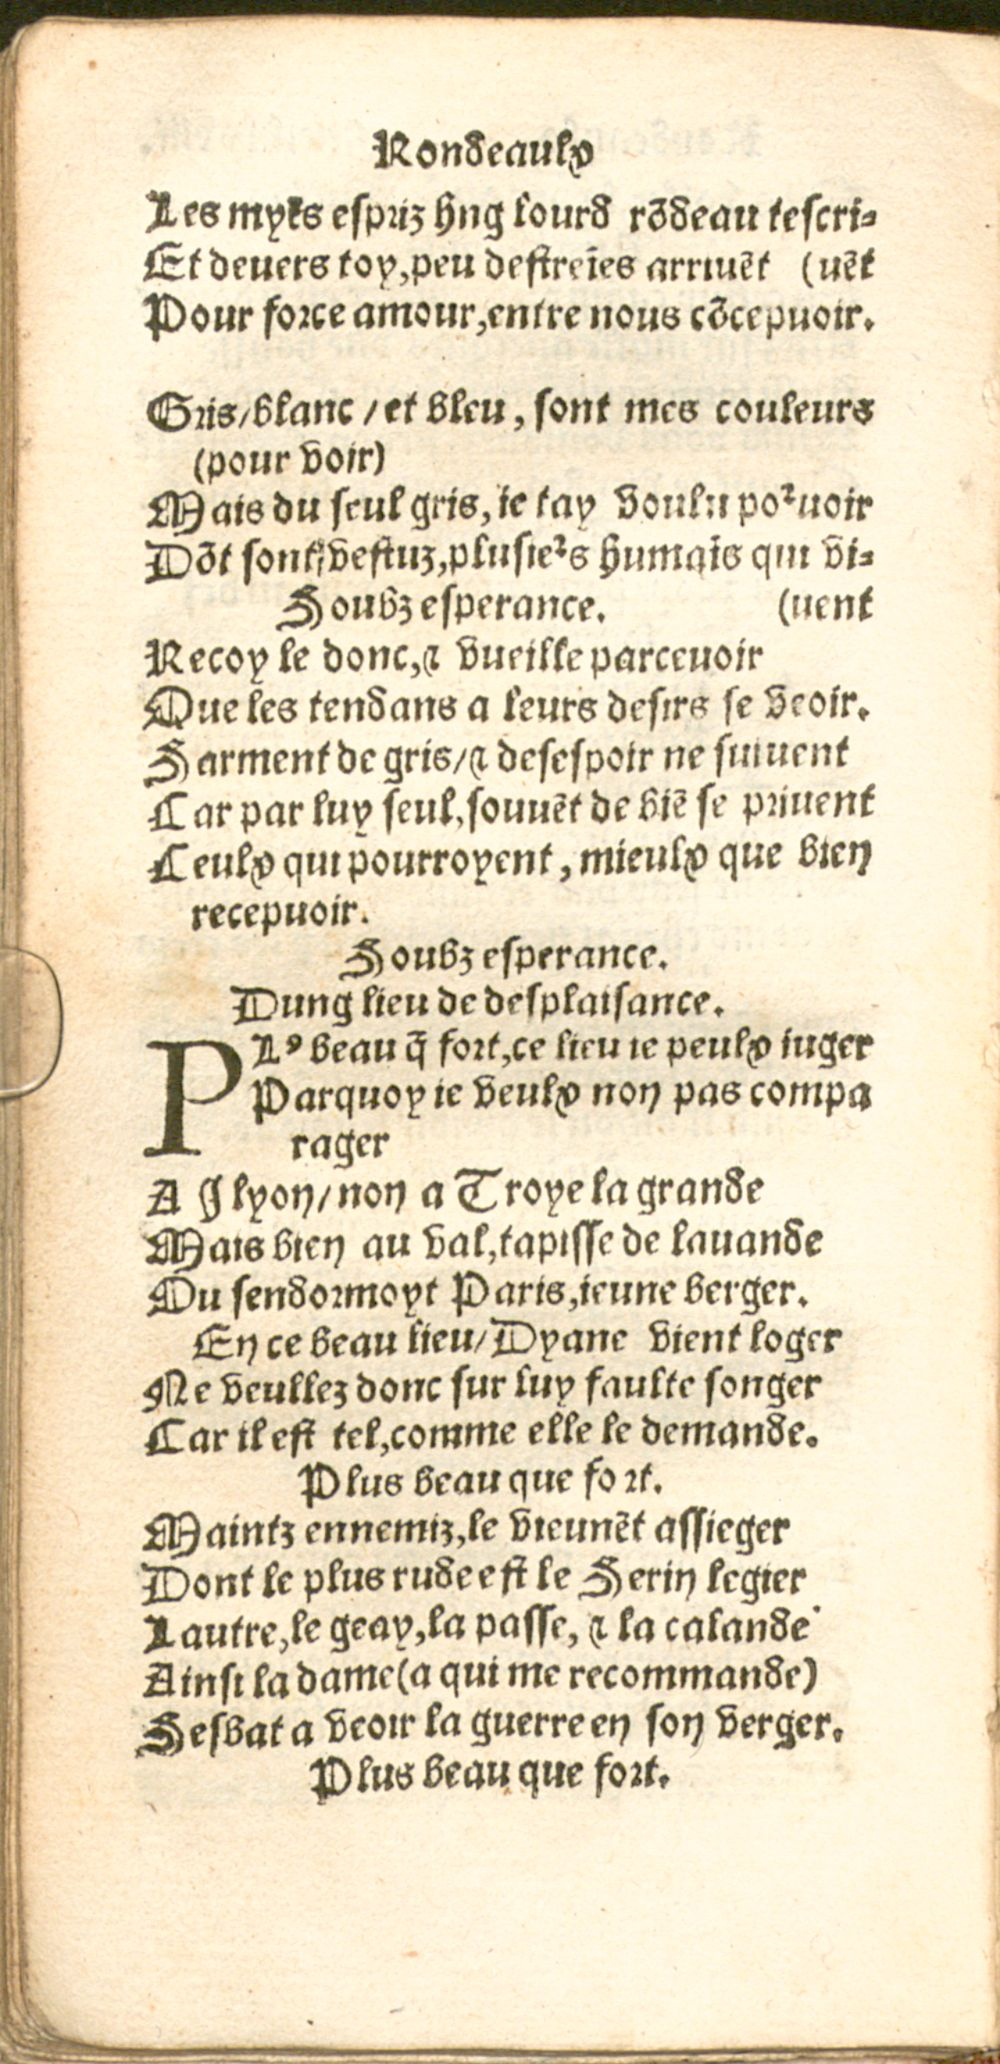 Rondeaulx
Les myẽs espriz ung lourd rõdeau tescri-
Et devers toy, peu destreĩes arrivẽt (vẽt
Pour force amour, entre nous cõcepuoir.
Gris/blanc/et bleu, sont mes couleurs
(pour voir)
Mais du seul gris, ie tay voulu poᷣuoir
Dõt sont vestuz, plusieᷣs humaĩs qui vi-
Soubz esperance. (uent
Recoy le donc, ⁊ vueille parcevoir
Que les tendans a leurs desirs se veoir.
Sarment de gris/⁊ desespoir ne suiuent
Car par luy seul, souuẽt de biẽ se priuent
Ceulx qui pourroyent, mieulx que bien
recepuoir.
Soubz esperance.
Dung lieu de desplaisance.
PLꝰ beau q̃ fort, ce lieu ie peulx iuger
Parquoy ie veulx non pas compa
rager
A Ilyon/non a Troye la grande
Mais bien au val, tapisse de lauande
Ou sendormoyt Paris, ieune berger.
En ce beau lieu/Dyane vient loger
Ne veullez donc sur luy faulte songer
Car il est tel, comme elle le demande.
Plus beau que fort.
Maintz ennemiz, le vieunẽt assieger
Dont le plus rude est le Serin legier
Lautre, le geay, la passe, ⁊ la calande
Ainsi la dame (a qui me recommande)
Sesbat a veoir la guerre en son verger.
Plus beau que fort.